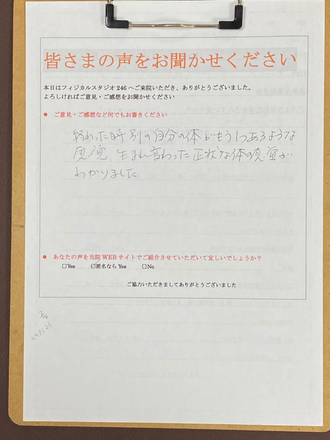 皆さまの声をお聞かせください
本日はフィジカルスタジオ246へご来院いただき、ありがとうございました。
よろしければご意見・ご感想をお聞かせください
● ご意見・ご感想など何でもお書きください
終わった時 別の自分の体がもう1つあるような
感覚 生まれ変わった 正状な体の感覚が
わかりました
● あなたの声を当院WEBサイトでご紹介させていただいて宜しいでしょうか?
□Yes ☑匿名ならYes □No
ご協力いただきましてありがとうございました